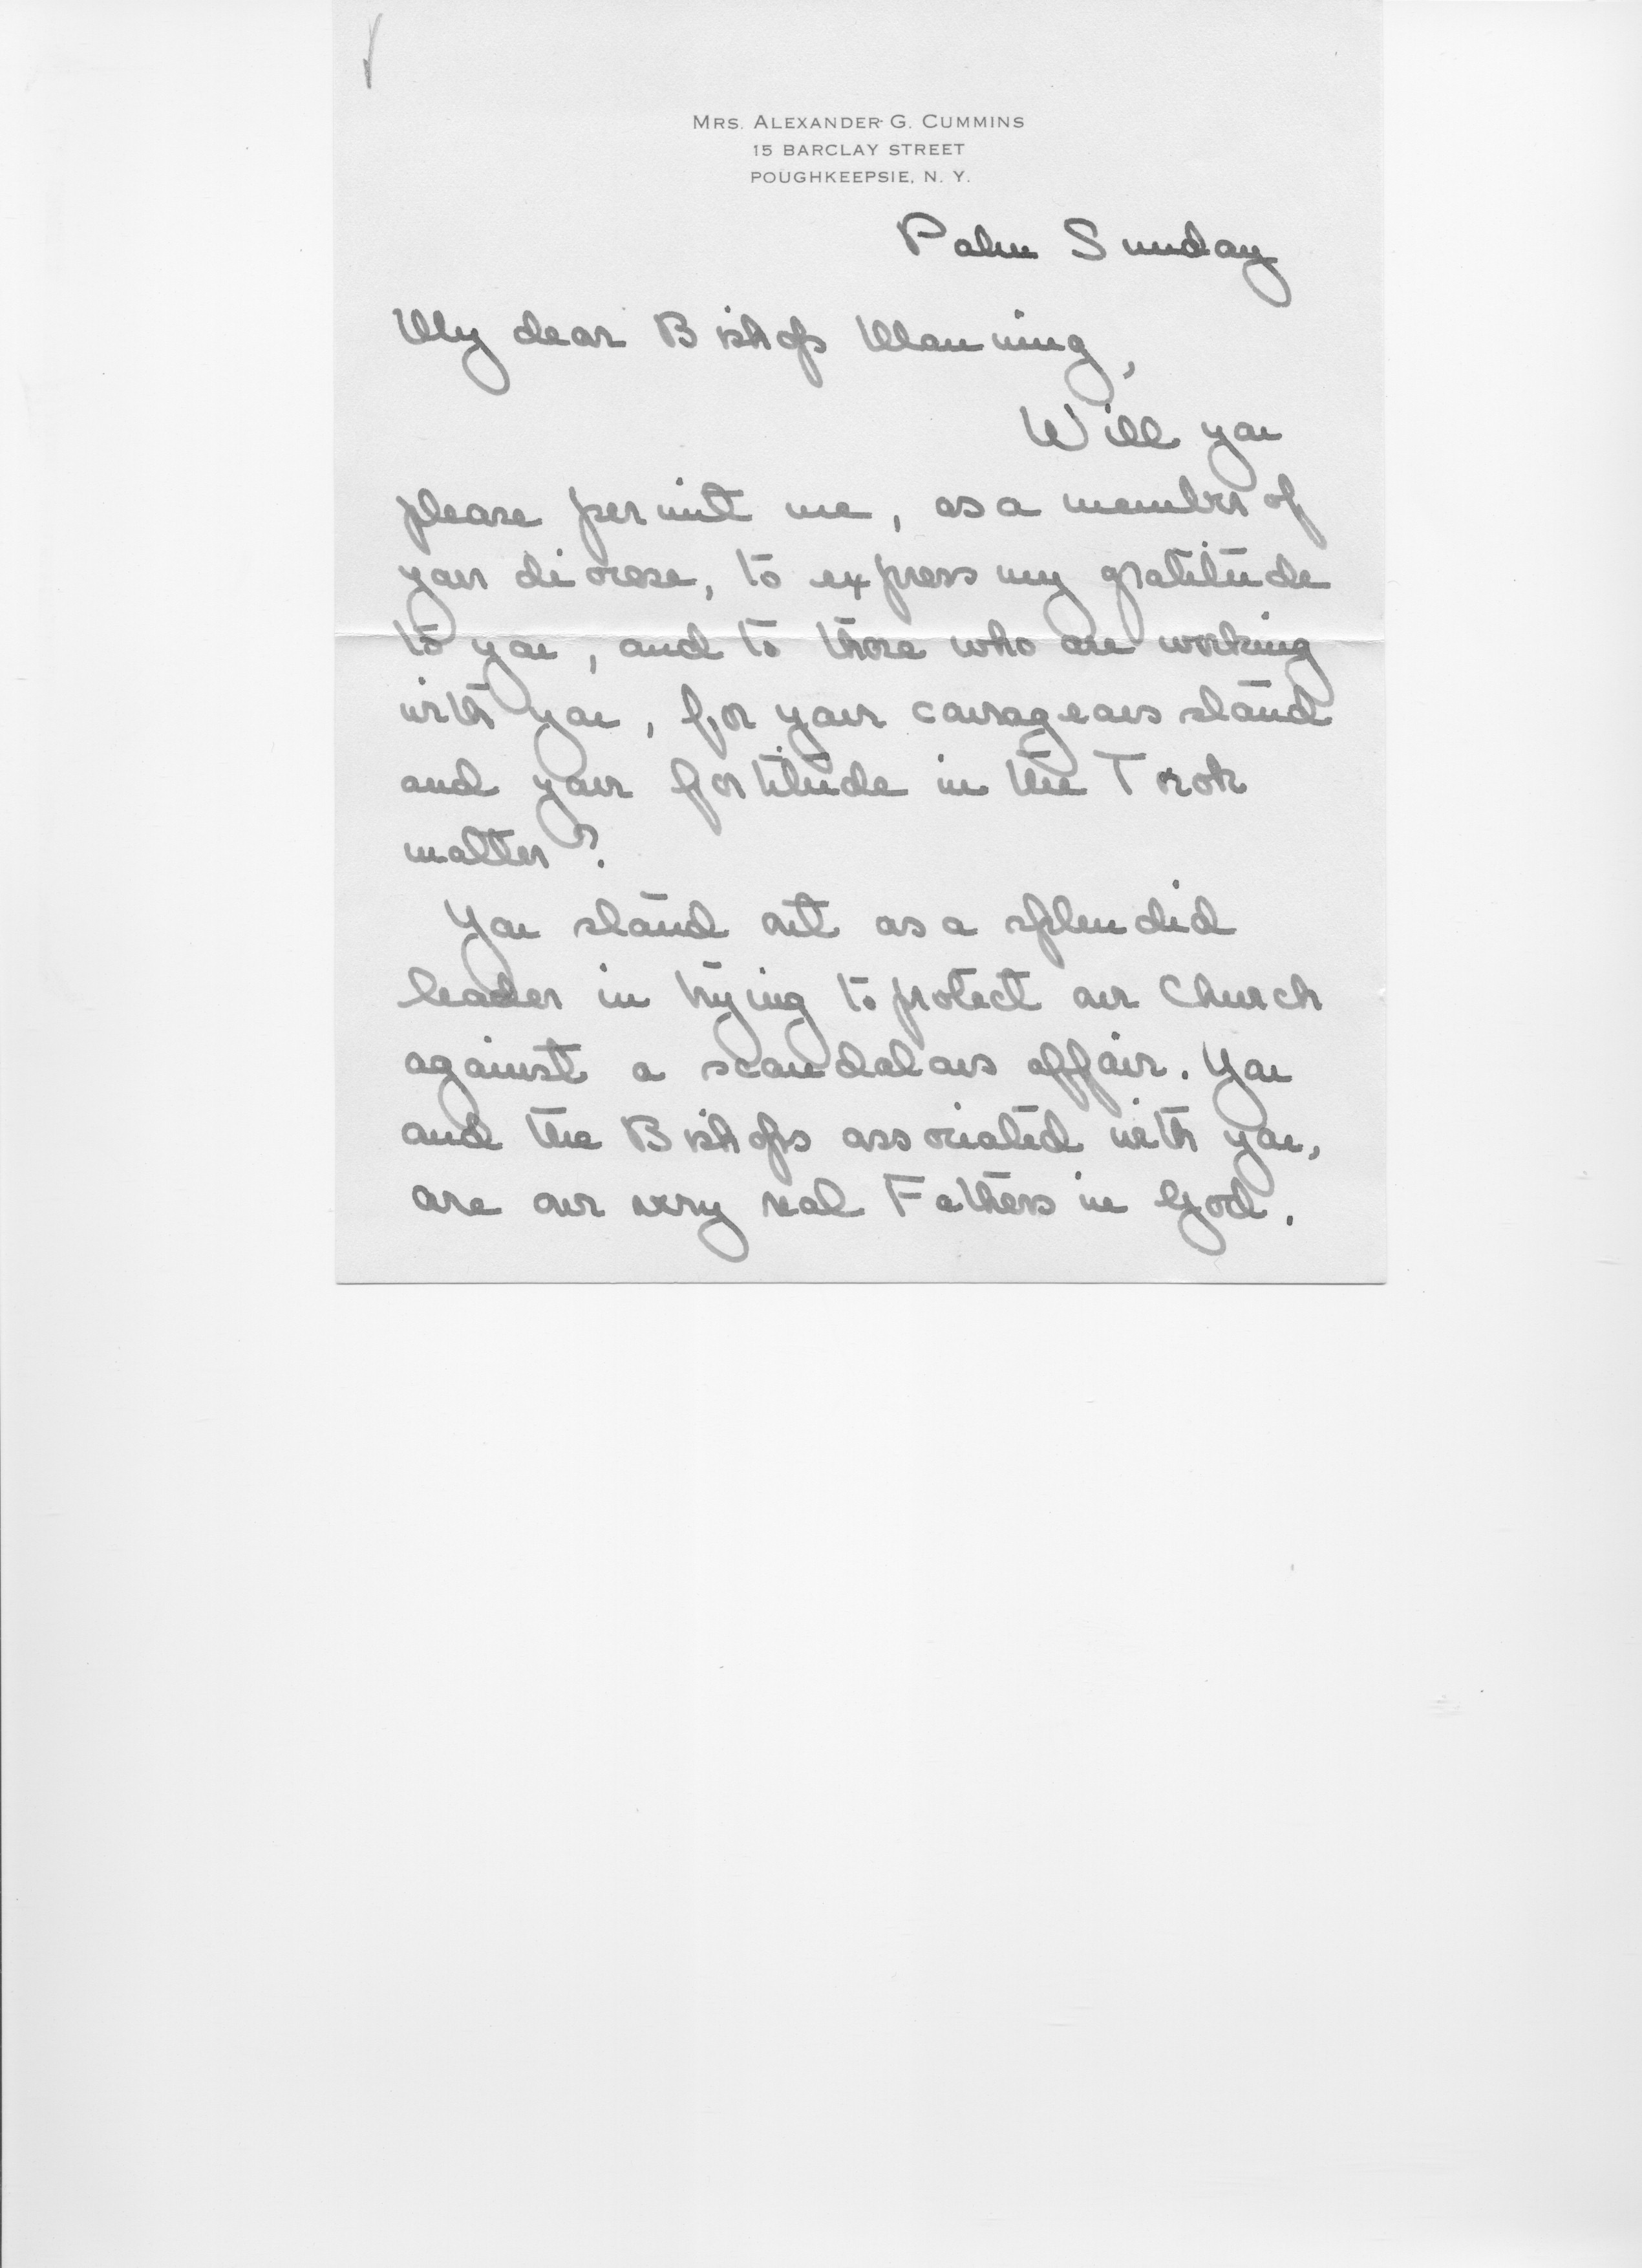 MRS. ALEXANDER G. CUMMINS
15 BARCLAY STREET
POUGHKEEPSIE, N. Y.
Palm Sunday
My dear Bishop Manning,
Will you
please permit me, as a member of
your diocese, to express my gratitude
to you, and to those who are working
with you, for your courageous stand
and your fortitude in the Torok
matter?
You stand out as a splendid
leader in trying to protect our Church
against a scandalous affair. You
and the Bishops associated with you,
are our very real Fathers in God.